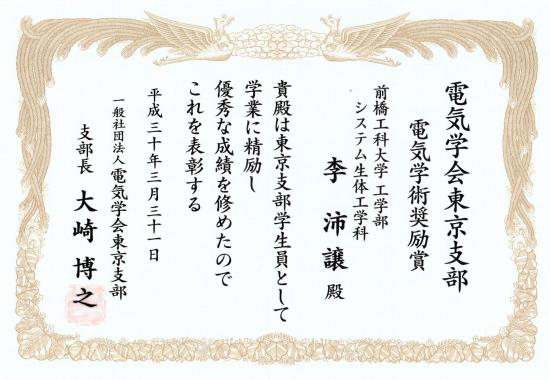 電気学会東京支部
電気学術奨励賞
前橋工科大学 工学部
システム生体工学科
李 沛譲 殿
貴殿は東京支部学生員として
学業に精励し
優秀な成績を修めたので
これを表彰する
平成三十年三月三十一日
一般社団法人 電気学会東京支部
支部長 大崎博之